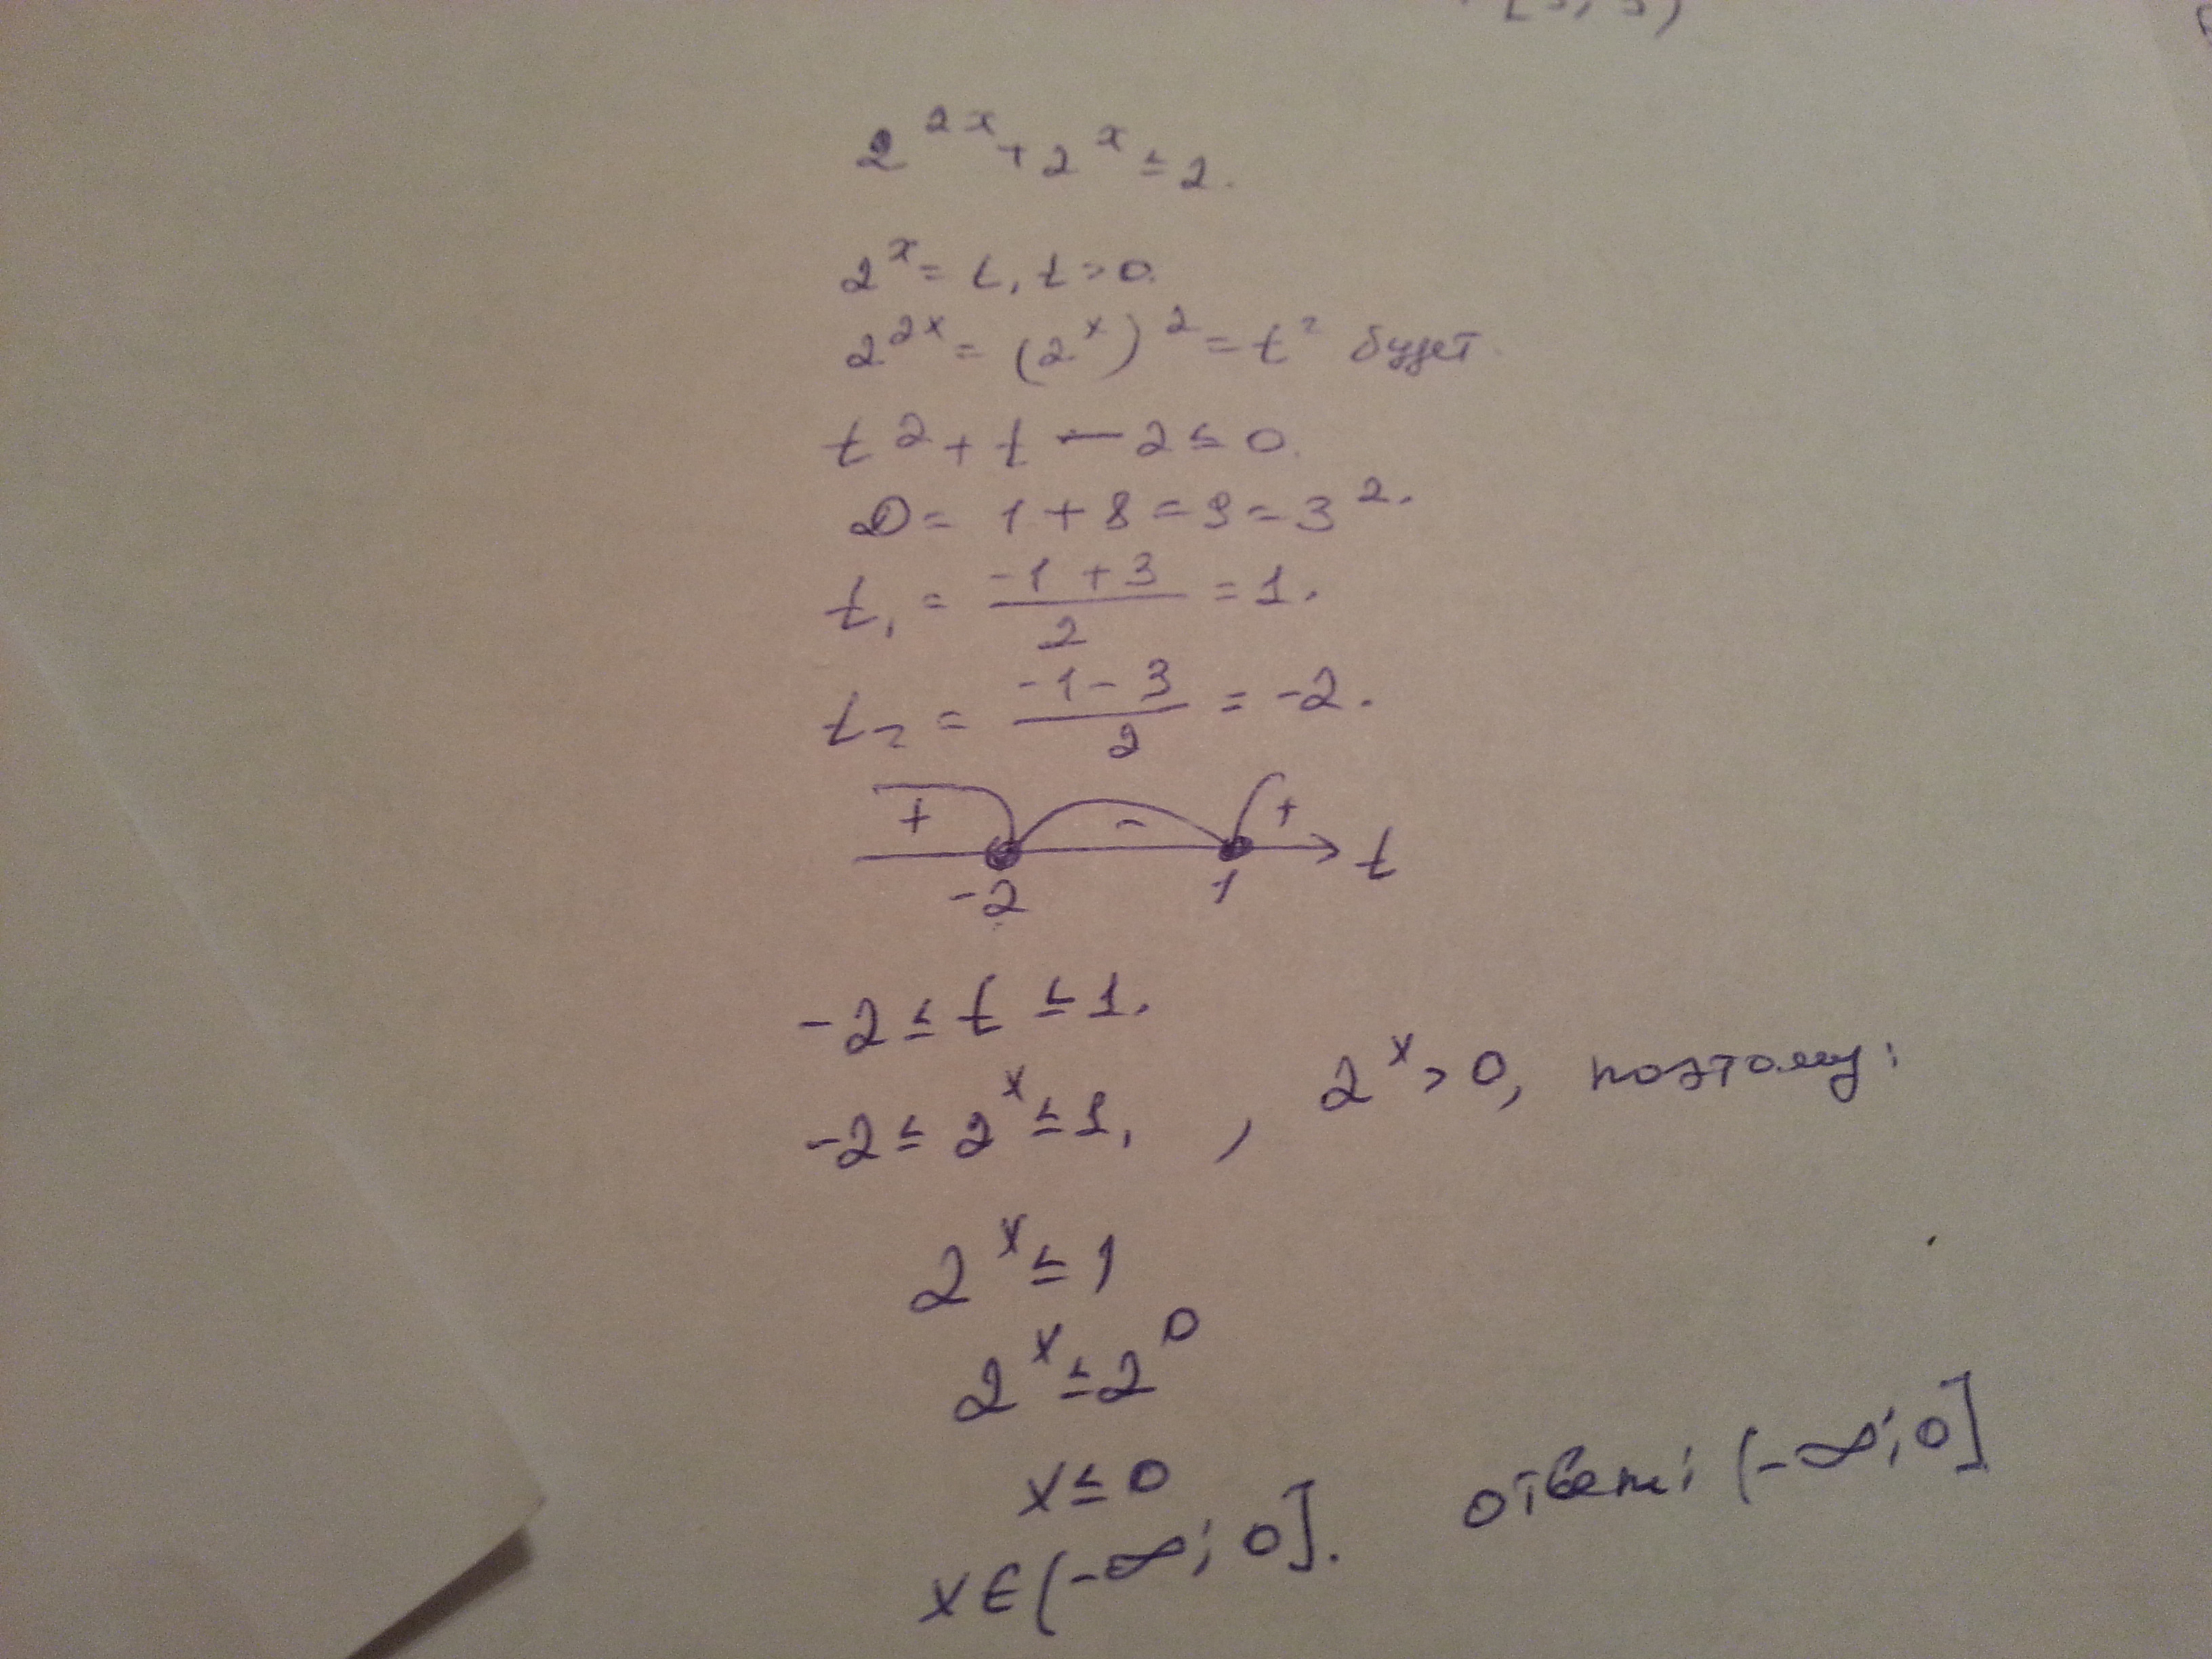 2^{2x} + 2^x ≤ 2.
2^x = t, t > 0.
2^{2x} = (2^x)^2 = t^2 будет
t^2 + t - 2 ≤ 0.
D = 1 + 8 = 9 = 3^2.
t_1 = \frac{-1 + 3}{2} = 1.
t_2 = \frac{-1 - 3}{2} = -2.
+ - +
-2 1 t
-2 ≤ t ≤ 1.
-2 ≤ 2^x ≤ 1, , 2^x > 0, поэтому:
2^x ≤ 1
2^x ≤ 2^0
x ≤ 0
x ∈ (-∞; 0]. ответ: (-∞; 0]